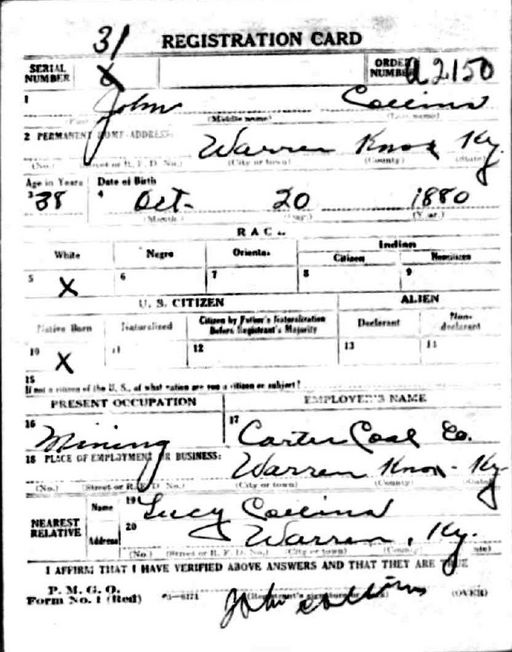 31
REGISTRATION CARD
SERIAL NUMBER X ORDER NUMBER A2150
1 John Collins
(First name) (Middle name) (Last name)
2 PERMANENT HOME ADDRESS:
Warren Knox Ky.
(No.) (Street or R. F. D. No.) (City or town) (County) (State)
Age in Years Date of Birth
3 38 4 Oct. 20 1880
(Month) (Day) (Year)
RACE
White Negro Oriental Indian
Citizen Noncitizen
5 X 6 7 8 9
U. S. CITIZEN ALIEN
Native Born Naturalized Citizen by Father's Naturalization Before Registrant's Majority Declarant Non-declarant
10 X 11 12 13 14
15
If not a citizen of the U. S., of what nation are you a citizen or subject?
PRESENT OCCUPATION EMPLOYER'S NAME
16 Mining 17 Carter Coal Co.
18 PLACE OF EMPLOYMENT OR BUSINESS:
Warren Knox - Ky
(No.) (Street or R. F. D. No.) (City or town) (County) (State)
NEAREST RELATIVE
Name 19 Lucy Collins
Address 20 Warren, Ky.
(No.) (Street or R. F. D. No.) (City or town) (County) (State)
I AFFIRM THAT I HAVE VERIFIED ABOVE ANSWERS AND THAT THEY ARE TRUE
P. M. G. O.
Form No. 1 (Red) 3—6171 John Collins (OVER)
(Registrant's signature or mark)